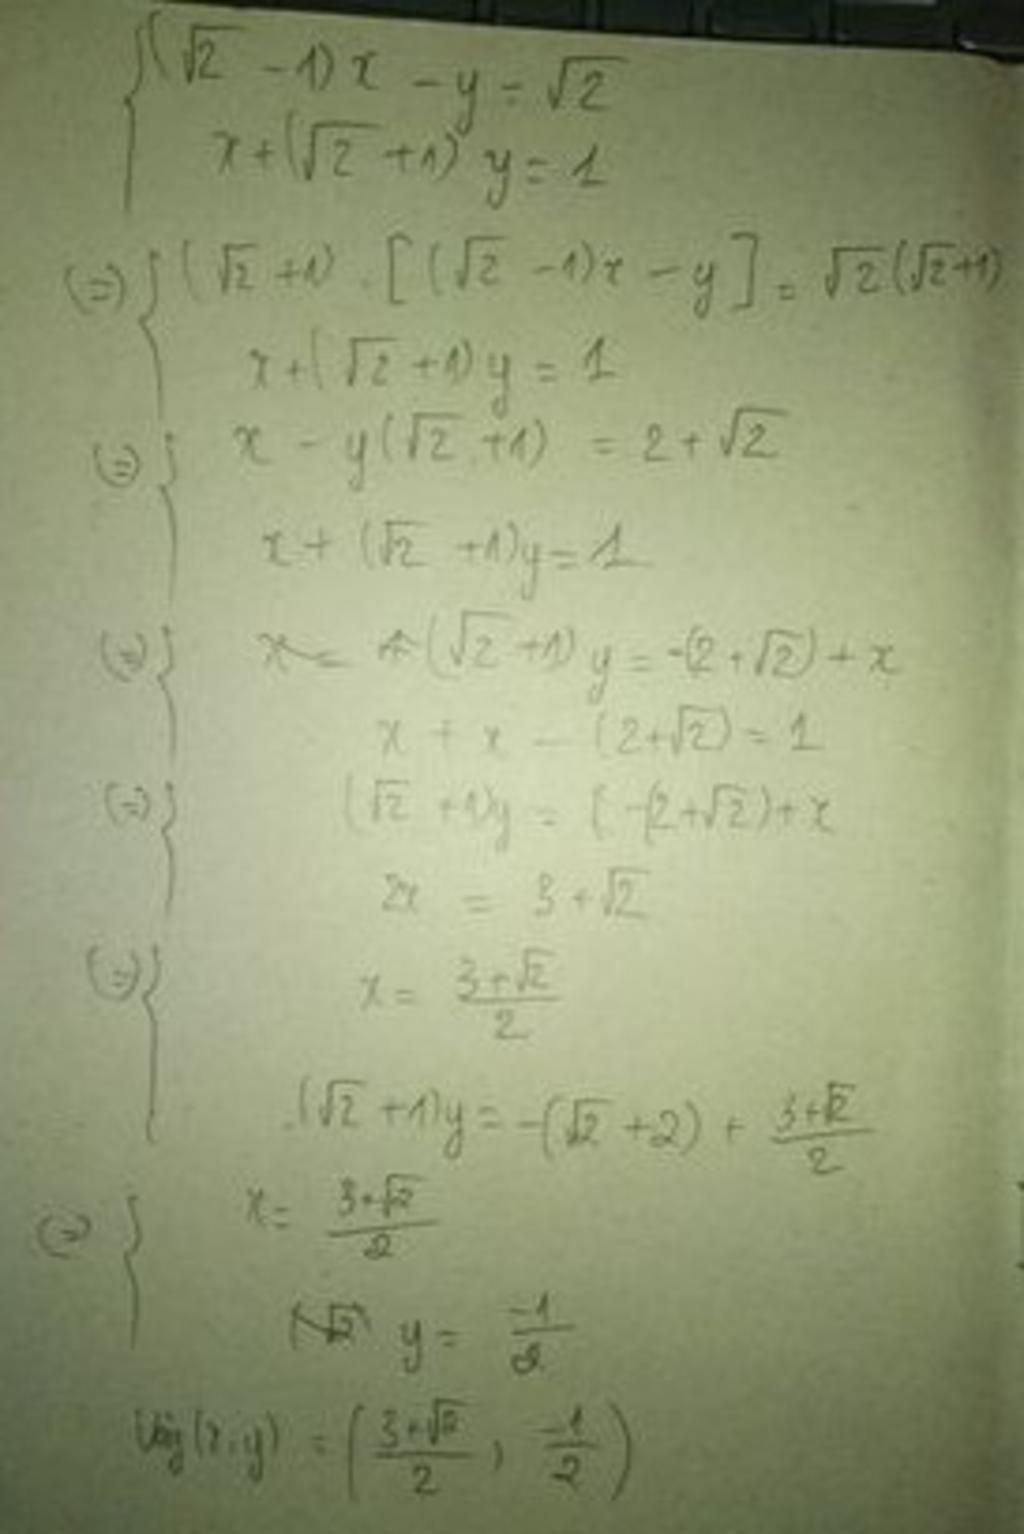 (√2 - 1)x - y = √2
x + (√2 + 1) y = 1
(=) (√2 + 1) . [(√2 - 1)x - y] = √2(√2+1)
x + (√2 + 1)y = 1
(=) x - y(√2 + 1) = 2 + √2
x + (√2 + 1)y = 1
(=) (√2 + 1) y = -(2 + √2) + x
x + x - (2+√2) = 1
(=) (√2 + 1)y = (-(2+√2)+x
2x = 3 + √2
(=) x = (3+√2)/2
(√2 + 1)y = -(√2 + 2) + (3+√2)/2
(=) x = (3+√2)/2
y = -1/2
Vậy (x,y) = ((3+√2)/2, -1/2)